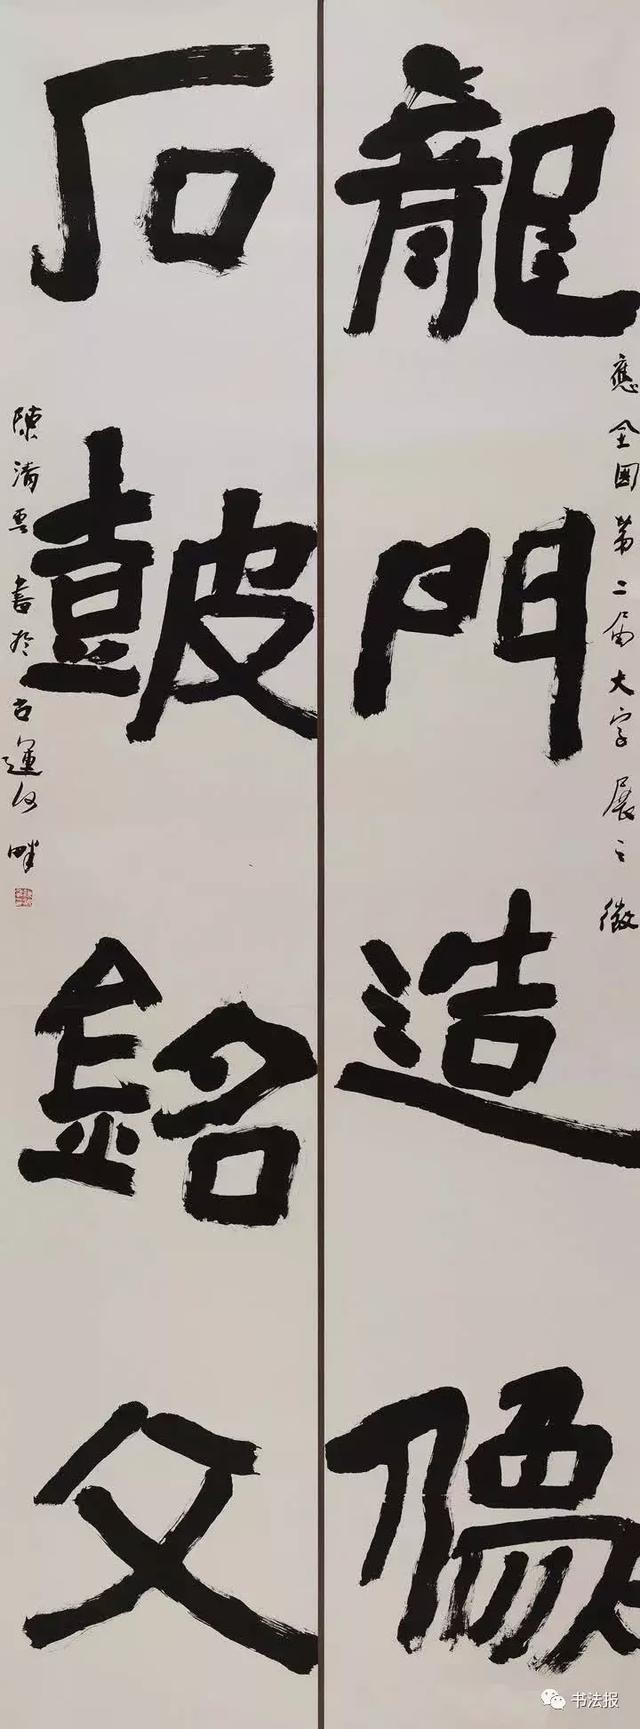 應全國第二届大字展之徵
龍門造像
石皷銘文
陳清雲書於古運河畔
书法报